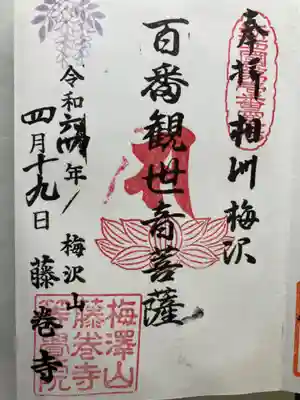 奉拝 相州梅沢
百番観世音菩薩
梅沢山 藤巻寺
令和六年
四月十九日
梅澤山
藤巻寺
等覺院